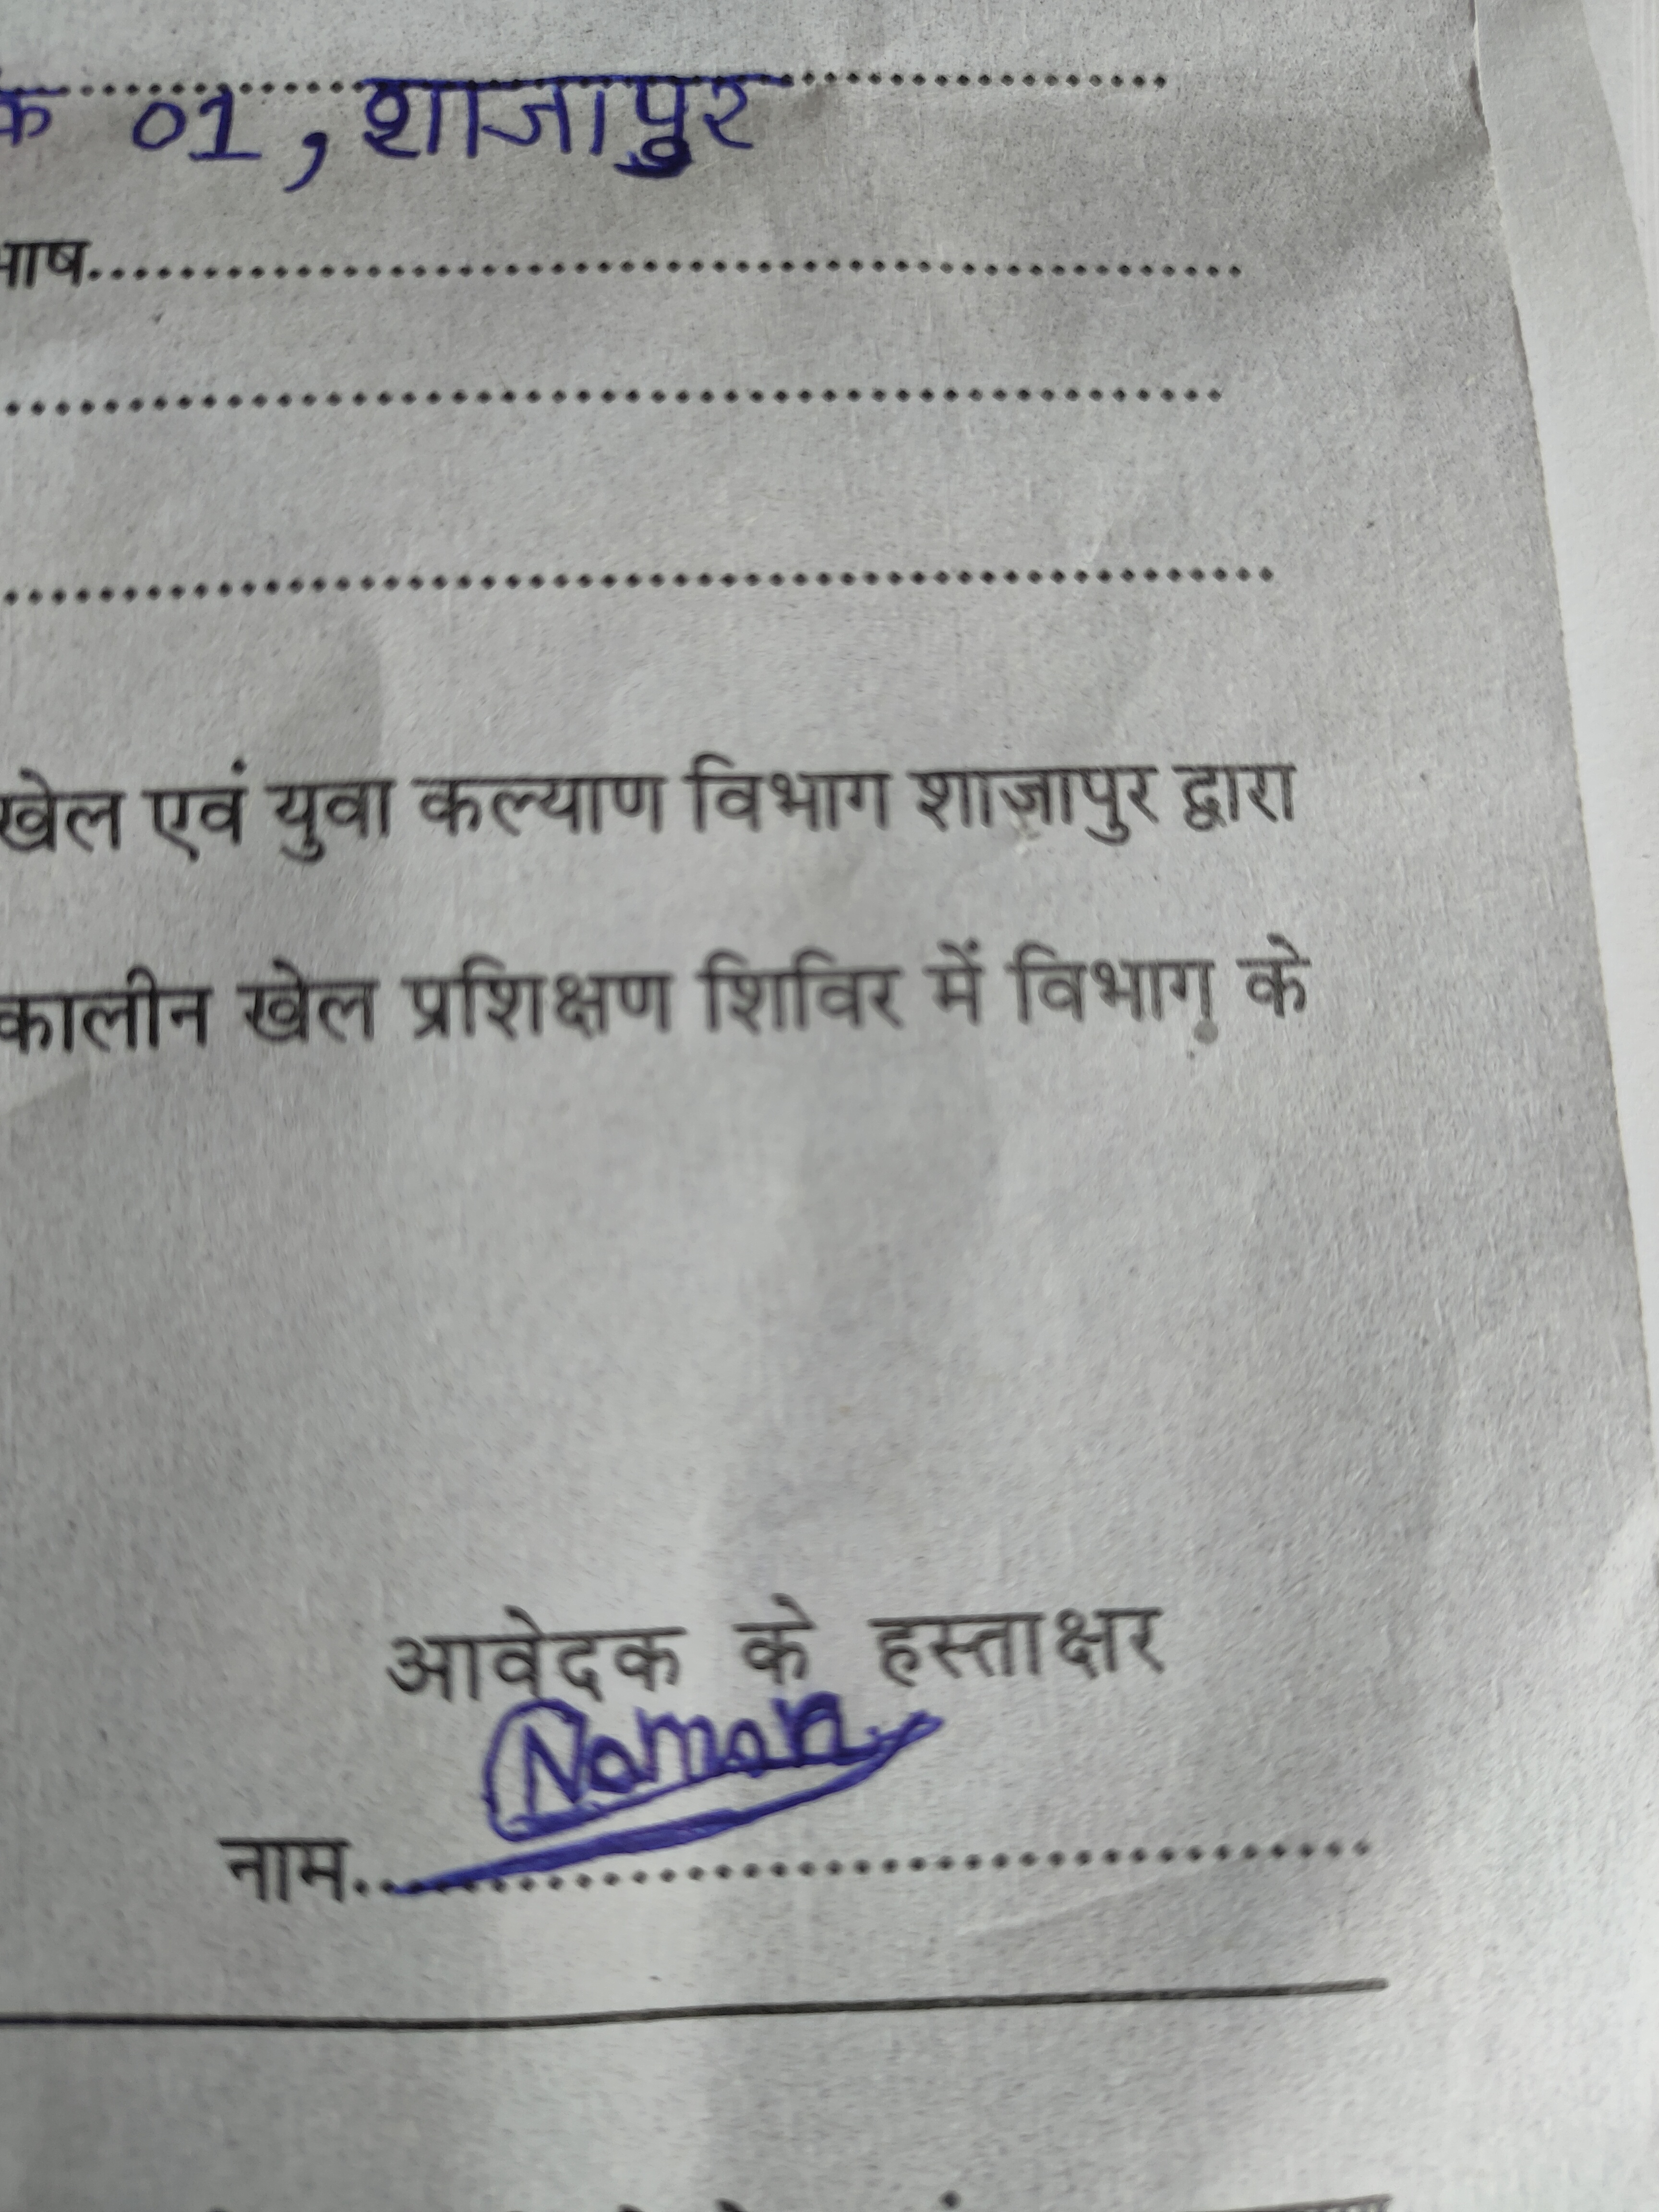 क 01, शाजापुर
भाष..........................................................
..........................................................
..........................................................
खेल एवं युवा कल्याण विभाग शाजापुर द्वारा
कालीन खेल प्रशिक्षण शिविर में विभाग के
आवेदक के हस्ताक्षर
Naman
नाम..........................................................